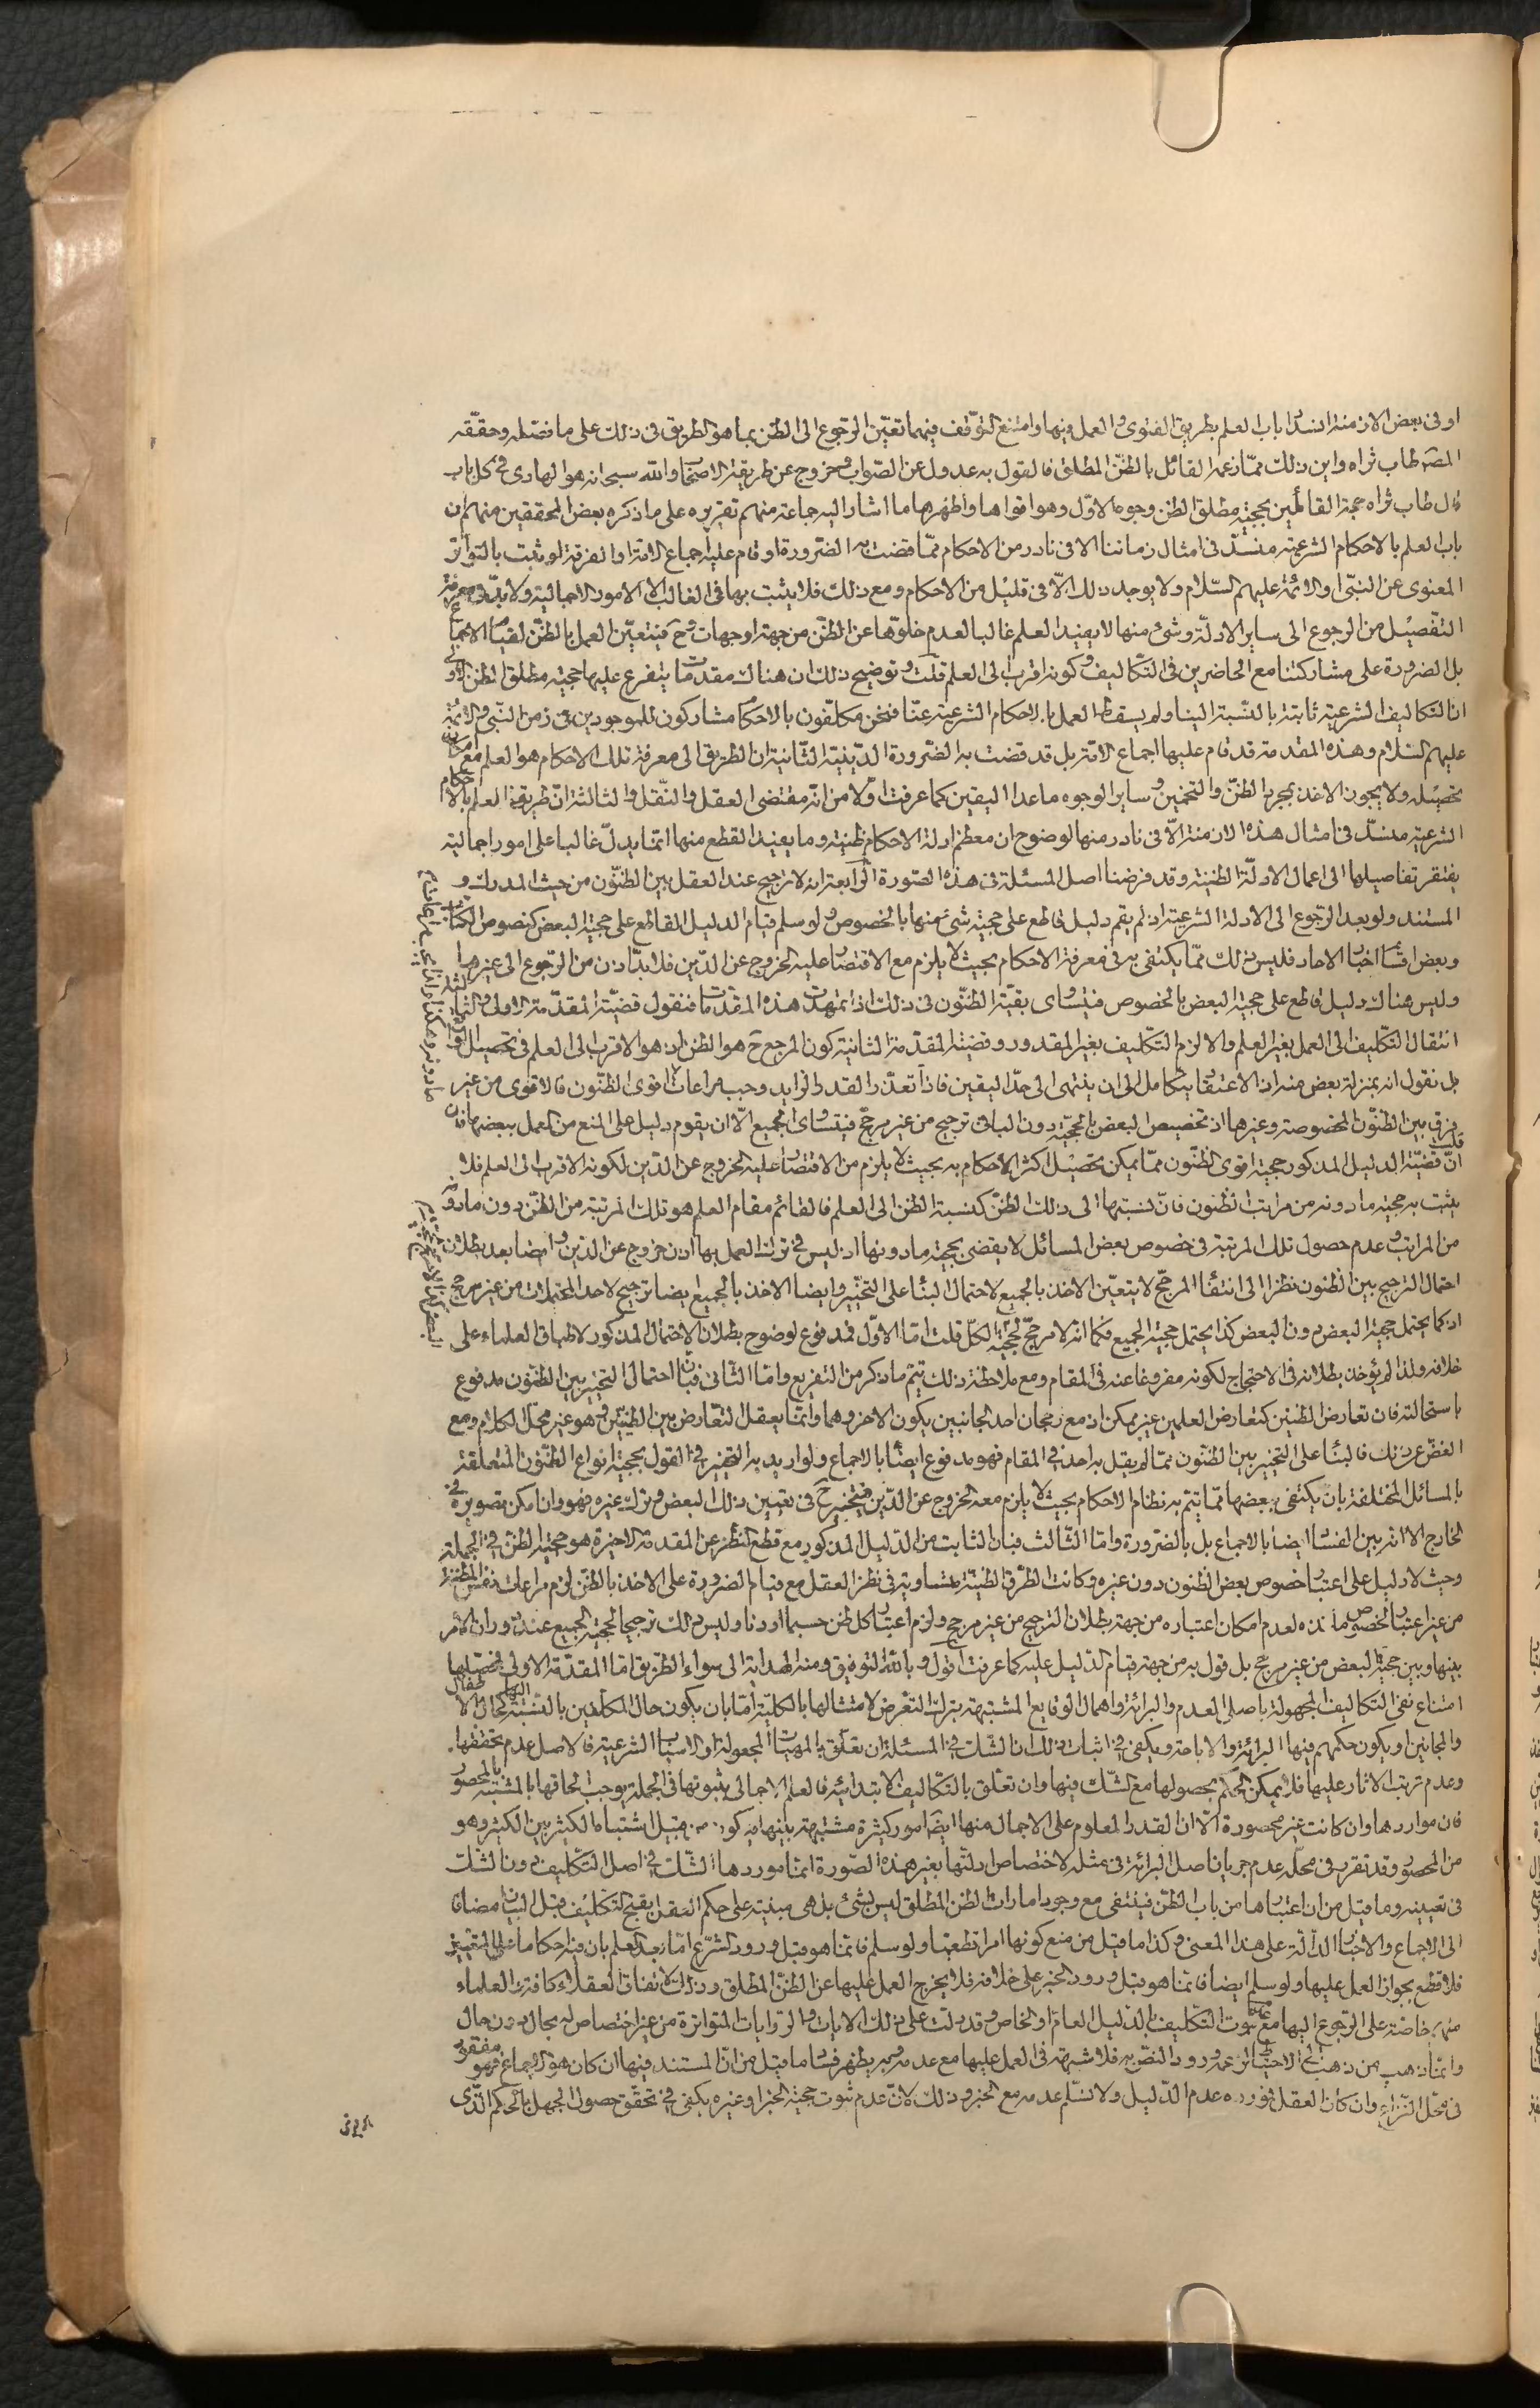 او فى بعض الازمنة انسد باب العلم بطريق الفتوى و العمل فيها وامتنع التوقف فيهما تعيّن الرجوع الى الظن بما هو الطريق فى ذلك على ما فصّله وحقّقه
المصّ طاب ثراه واين ذلك ممّا زعمه القائل بالظنّ المطلق فالقول به عدول عن الصّواب وخروج عن طريقة الاصحاب والله سبحانه هو الهادى فى كل باب
قال طاب ثراه حجة القائلين بحجية مطلق الظن وجوه الاوّل وهو اقواها واظهرها ما اشار اليه جماعة منهم تقريره على ما ذكره بعض المحققين منهم ان
باب العلم بالاحكام الشرعيّة منسدّ فى امثال زماننا الا فى نادر من الاحكام ممّا قضت به الضّرورة او قام عليه اجماع الامّة او الفرقة او ثبت بالتواتر
المعنوى عن النبّى او الائمّة عليهم السّلام ولا يوجد ذلك الّا فى قليل من الاحكام ومع ذلك فلا يثبت بها فى الغالب الا الامور الاجمالية ولا بدّ فى معرفة
التفصيل من الرجوع الى ساير الادلّة وشئ منها لا يفيد العلم غالبا لعدم خلوّها عن الظّن من جهة او جهات وح فيتعيّن العمل بالظنّ لقيام الاجماع
بل الضرورة على مشاركتنا مع الحاضرين فى التّكاليف وكونه اقرب الى العلم قلت وتوضيح ذلك ان هناك مقدمات يتفرع عليها حجية مطلق الظن الاولى
ان التكاليف الشرعيّة ثابتة بالنّسبة الينا ولم يسقط العمل بالاحكام الشرعيّة عنّا فنحن مكلّفون بالاحكام مشاركون للموجودين فى زمن النّبى والائمّة
عليهم السّلام وهذه المقدمة قد قام عليها اجماع الامّة بل قد قضت به الضّرورة الدّينيّة الثّانية ان الطريق الى معرفة تلك الاحكام هو العلم مع امكان
تحصيله ولا يجوز الاخذ بمجرد الظنّ والتخمين وساير الوجوه ما عدا اليقين كما عرفت اوّلا من انّه مقتضى العقل والنّقل والثالثة انّ طريق العلم بالاحكام
الشّرعية منسدّ فى امثال هذه الازمنة الاّ فى نادر منها لوضوح ان معظم ادلة الاحكام ظنية وما يفيد القطع منها انّما يدلّ غالبا على امور اجمالية
يفتقر تفاصيلها الى اعمال الادلّة الظنية وقد فرضنا اصل المسئلة فى هذه الصّورة الرّابعة انه لا ترجيح عند العقل بين الظنّون من حيث المدرك و
المستند ولو بعد الرّجوع الى الادلة الشرعيّة اذ لم يقم دليل قاطع على حجية شئ منها بالخصوص ولو سلم قيام الدليل القاطع على حجية البعض كنصوص الكتاب
وبعض اقسام اخبار الاحاد فليس ذلك ممّا يكتفى به فى معرفة الاحكام بحيث لا يلزم مع الاقتصار عليه الخروج عن الدّين فلا بدّ اذن من الرّجوع الى غيرها
وليس هناك دليل قاطع على حجية البعض بالخصوص فيتساوى بقيّة الظنّون فى ذلك اذا تمهدت هذه المقدمات فنقول قضيّة المقدّمة الاولى والثالثة
انتقال التّكليف الى العمل بغير العلم والا لزم التّكليف بغير المقدور وقضية المقدّمة الثانية كون المرجع ح هو الظن اذ هو الاقرب الى العلم فى تحصيل الواقع
بل نقول انه بمنزلة بعض منه اذ الاعتقاد يتكامل الى ان ينتهى الى حدّ اليقين فاذا تعذّر القدر الزايد وجب مراعات الاقوى الظنّون فالاقوى من غير
فرق بين الظنّون المخصوصة وغيرها اذ تخصيص البعض بالحجّية دون الباقى ترجيح من غير مرجّح فيتساوى الجميع الّا ان يقوم دليل على المنع من العمل ببعضها فان
قلت انّ قضيّة الدليل المذكور حجية اقوى الظنّون ممّا يمكن تحصيل اكثر الاحكام به بحيث لا يلزم من الاقتصار عليه الخروج عن الدّين لكونه الاقرب الى العلم فلا
يثبت به حجية مادونه من مراتب الظّنون فانّ نسبتها الى ذلك الظّنّ كنسبة الظنّ الى العلم فالقائم مقام العلم هو تلك المرتبة من الظّن دون مادونه
من المراتب وعدم حصول تلك المرتبة فى خصوص بعض المسائل لا يقضى بحجية مادونها اذ ليس فى ترك العمل بها اذن خروج عن الدّين وايضا بعد بطلان
احتمال الترجيح بين الظّنون نظرا الى انتفاء المرجّح لا يتعيّن الاخذ بالجميع لاحتمال البناء على التخيّير وايضا الاخذ بالجميع ايضا ترجيح لاحد المحتملات من غير مرجح
اذ كما يحتمل حجية البعض دون البعض كذا يحتمل حجية الجميع فكما انه لا مرجّح لحجية الكلّ قلت امّا الاوّل فمدفوع لوضوح بطلان الاحتمال المذكور لاطباق العلماء على
خلافه ولذا لم يؤخذ بطلانه فى الاحتجاج لكونه مفروغا عنه فى المقام ومع ملاحظة ذلك يتم ما ذكر من التفريع وامّا الثّانى فبان احتمال التخيير بين الظنّون مدفوع
باستحالته فان تعارض الظنين كتعارض العلمين غير ممكن اذ مع رجحان احد الجانبين يكون الاخر وهما وانّما يعقل التّعارض بين الظنيّين وهو غير محلّ الكلام ومع
الغضّ عن ذلك فالبناء على التخيير بين الظنّون ممّا لم يقل به احد فى المقام فهو مدفوع ايضا بالاجماع ولو اريد به التخيير فى القول بحجية انواع الظّنّون المتعلّقة
بالمسائل المختلفة بان يكتفى ببعضها ممّا يتم به نظام الاحكام بحيث لا يلزم معه الخروج عن الدّين فيتخيّر ح فى تعيين ذلك البعض وترك غيره فهو وان امكن تصويره فى
الخارج الا انه بين الفساد ايضا بالاجماع بل بالضّرورة وامّا الثّالث فبان الثابت من الدّليل المذكور مع قطع النّظر عن المقدمة الاخيرة هو حجية الظنّ فى الجملة
وحيث لا دليل على اعتبار خصوص بعض الظنون دون غيره وكانت الطرق الظنيّة متساوية فى نظر العقل مع قيام الضّرورة على الاخذ بالظنّ لزم مراعات نفس المظنّة
من غير اعتبار لخصوص ماخذه لعدم امكان اعتباره من جهة بطلان الترجيح من غير مرجح ولزم اعتبار كل ظن حسبما اردنا وليس ذلك ترجيحا لحجية الجميع عند دوران الامر
بينها وبين حجية البعض من غير مرجح بل قول به من جهة قيام الدّليل عليه كما عرفت اقول وبالله التّوفيق ومنه الهداية الى سواء الطّريق امّا المقدّمة الاولى فتحصيلها
امتناع نفى التكاليف المجهولة باصلى العدم والبرائة واهمال الوقايع المشتبهة بترك التعرّض لامتثالها بالكليّة امّا بان يكون حال المكلّفين بالنّسبة اليها كحال الاطفال
والمجانين او يكون حكمهم فيها البرائة والاباحة ويكفى فى اثبات ذلك ان الشّك فى المسئلة ان تعلّق بالمهيّات المجعولة او الاسباب الشرعية فالاصل عدم تحقّقها
وعدم ترتب الاثار عليها فلا يمكن الحكم بحصولها مع الشّك فيها وان تعلّق بالتّكاليف الابتدائية فالعلم الاجمالى بثبوتها فى الجملة يوجب الحاقها بالمشتبه بالمحصور
فان مواردها وان كانت غير محصورة الّا ان القدر المعلوم على الاجمال منها ايضا امور كثيرة مشتبهة بينها فيكون من قبيل اشتباه الكثير بين الكثير وهو
من المحصور وقد تقرر فى محلّه عدم جريان اصل البرائة فى مثله لاختصاص ادلّتها بغير هذه الصّورة انّما موردها الشّك فى اصل التّكليف دون الشّك
فى تعيينه وما قيل من ان اعتبارها من باب الظنّ فينتفى مع وجود امارات الظن المطلق ليس بشئ بل هى مبنيّة على حكم العقل بقبح التّكليف قبل البيان مضافا
الى الاجماع والاخبار الدالّة على هذا المعنى وكذا ما قيل من منع كونها امرا قطعيّا ولو سلم فانّما هو قبل ورود الشّرع امّا بعد العلم بان فيه احكاما على التعيين
فلا قطع بجواز العمل عليها ولو سلم ايضا فانّما هو قبل ورود الخبر على خلافه فلا يخرج العمل عليها عن الظنّ المطلق وذلك لاتفاق العقلاء كافة والعلماء
منهم خاصّة على الرّجوع اليها مع عدم ثبوت التّكليف بالدّليل العامّ او الخاصّ وقد دلت على ذلك الايات والرّوايات المتواترة من غير اختصاص له بحال دون حال
وانّما ذهب من ذهب الى الاحتياط لزعمه ورود النصّ به فلا شبهة فى العمل عليها مع عدمه وبه يظهر فساد ما قيل من انّ المستند فيها ان كان هو الاجماع فهو مفقود
فى محلّ النّزاع وان كان العقل فمورده عدم الدّليل ولا نسلّم عدمه مع الخبر وذلك لانّ عدم ثبوت حجية الخبر او غيره يكفى فى تحقّق حصول الجهل بالحكم الذّى